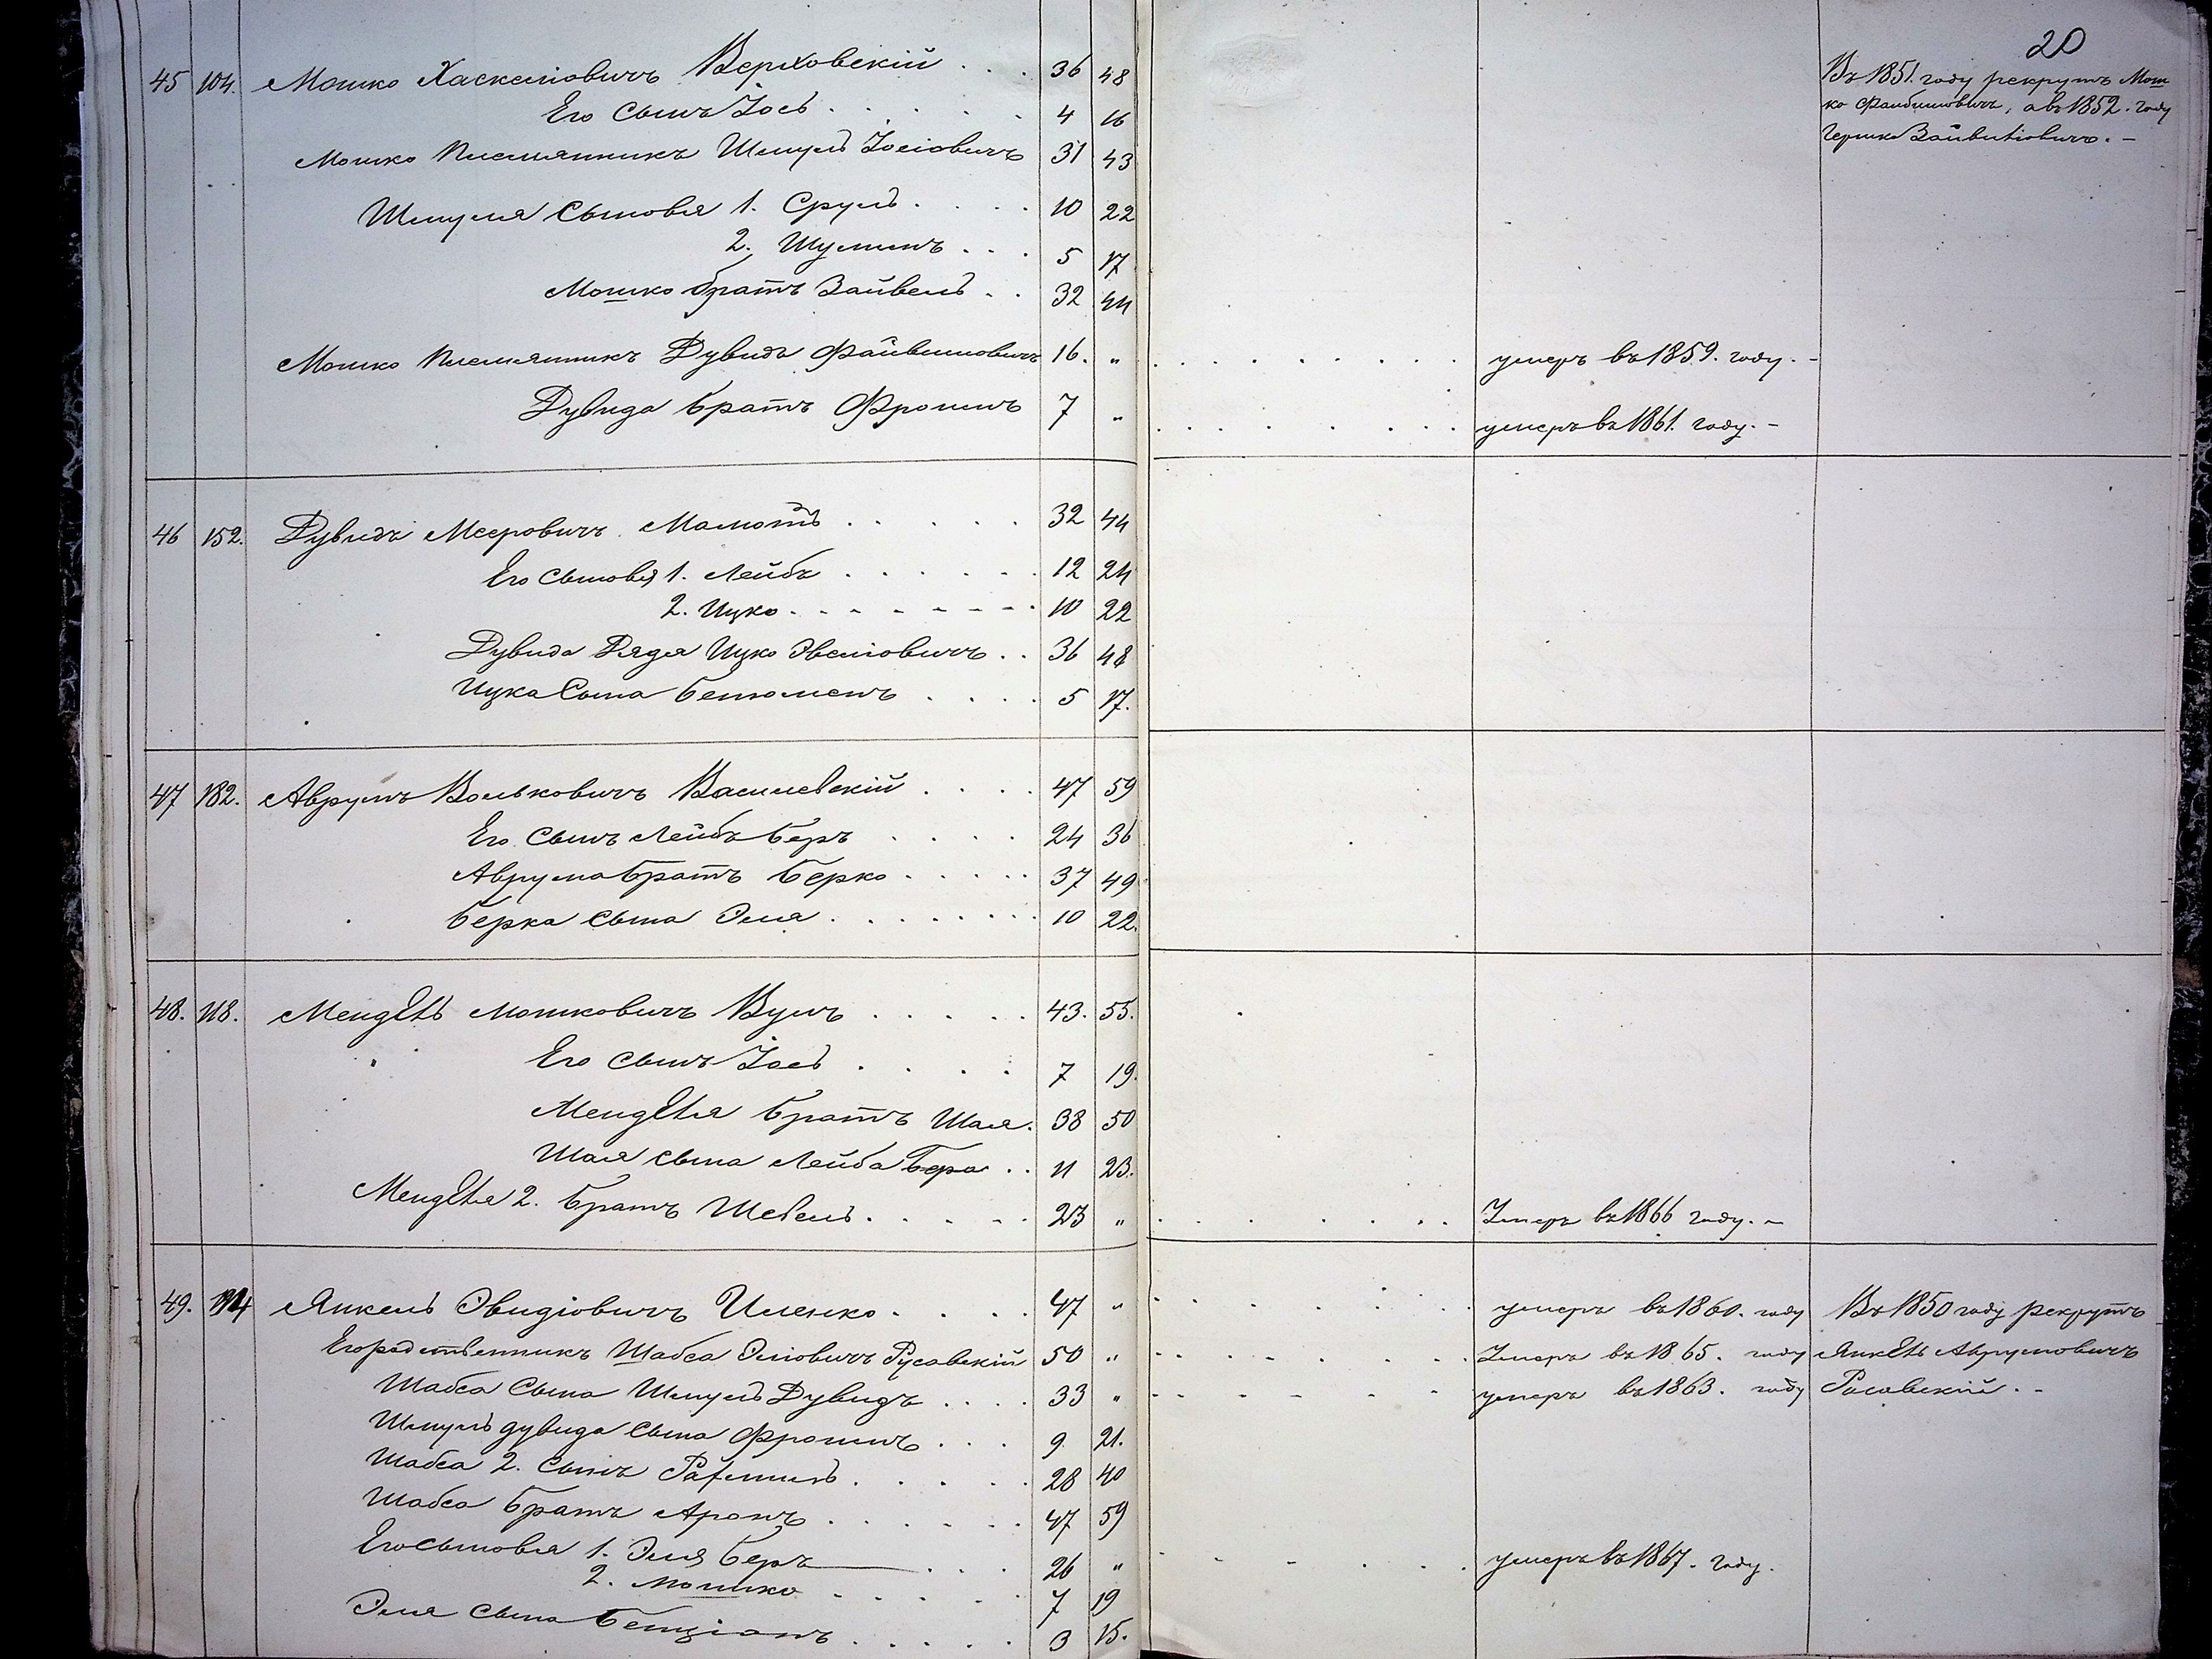 20
45 104. Мошко Хаскелiовичъ Верховскiй . . . 36 48 Въ 1851. году рекрутъ Мош
Его Сынъ Iось . . . . . 4 16 ко Файбишовичъ, а въ 1852. году
Мошко Племянникъ Шмуль Iосiовичъ 31 43 Гершко Зайвилiовичъ. –
Шмуля Сыновья 1. Сруль . . . . 10 22
2. Шулимъ . . . 5 17
Мошко братъ Зайвель . . 32 44
Мошко Племянникъ Дувидъ Файвишовичъ 16. „ . . . . . . . . умеръ въ 1859. году. –
Дувида братъ Фроимъ 7 „ . . . . . . . умеръ въ 1861. году. –
46 152. Дувидъ Мееровичъ Мамотъ . . . . . 32 44
Его Сыновья 1. Лейбъ . . . . . . 12 24
2. Ицко . . . . . . . 10 22
Дувида Дядя Ицко Эвелiовичъ . . 36 48
Ицка Сына Бенюменъ . . . . 5 17.
47 182. Аврумъ Вольковичъ Василевскiй . . . . 47 59
Его Сынъ Лейбъ Беръ . . . . 24 36
Аврума братъ Берко . . . . . 37 49
Берка Сына Эля . . . . . . . . 10 22.
48. 118. Мендель Мошковичъ Вулъ . . . . . 43. 55.
Его Сынъ Iось . . . . 7 19.
Менделя братъ Шая . 38 50
Шая сына Лейба Бера . . 11 23.
Менделя 2. братъ Шевель . . . . . 23 „ . . . . . . . Умеръ въ 1866 году. –
49. 194 Янкель Овидiовичъ Иленко . . . . 47 „ . . . . . . . умеръ въ 1860. году Въ 1850 году рекрутъ
Его родственникъ Шабса Элiовичъ Русавскiй 50 „ . . . . . . . Умеръ въ 1865. году Янкель Аврумовичъ
Шабса Сына Шмуль Дувидъ . . . . 33 „ . . . . . . умеръ въ 1863. году Росавскiй. –
Шмуль дувида Сына Фроимъ . . . 9 21.
Шабса 2. Сынъ Рафаилъ . . . . . 28 40
Шабса братъ Аронъ . . . . . . 47 59
Его сыновья 1. Эля Беръ . . . 26 „ . . . . . . умеръ въ 1867. году.
2. Мошко . . . . . . 7 19
Эля Сына Бенцiонъ . . . . . 3 15.